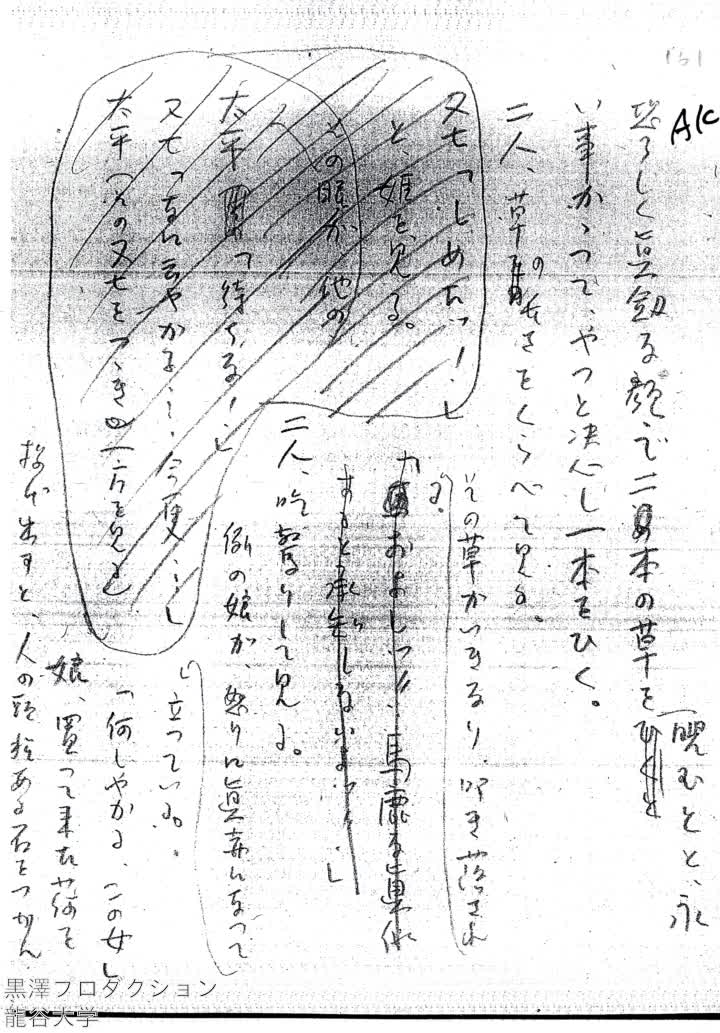 AK
恐ろしく真剣な顔で二本の草を睨むとと、永
い事かゝつて、やつと決心し一本をひく。
二人、草の長さをくらべて見る。
又七「しめたッ！」
と、姫を見る。
その眼が他の
太平「待ちな！」
又七「なに云やがる……今更……」
太平(その又七をつゝき一方を見る)
その草がいきなり、叩き落され
る。
「およしッ!! 馬鹿な真似
すると承知しないよッ！」
二人、吃驚りして見る。
例の娘が、怒りに真赤になつて
立つている。
「何しやがる、この女」
娘、買って来た
出すと、人の頭程ある石をつかん
黒澤プロダクション
龍谷大学